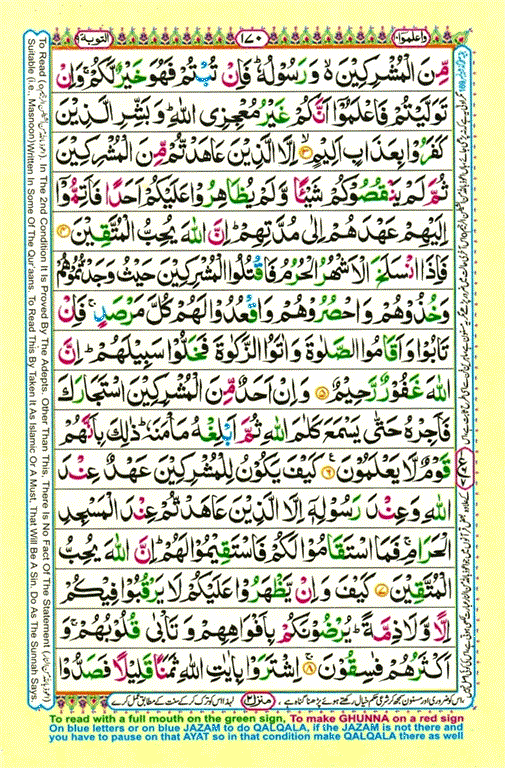 واعلموا
١٧٠
التوبة
مِّنَ الْمُشْرِكِيْنَ ۙ وَرَسُوْلُهٗ ؕ فَاِنْ تُبْتُمْ فَهُوَ خَيْرٌ لَّكُمْ ۚ وَاِنْ
تَوَلَّيْتُمْ فَاعْلَمُوْۤا اَنَّكُمْ غَيْرُ مُعْجِزِى اللّٰهِ ؕ وَبَشِّرِ الَّذِيْنَ
كَفَرُوْا بِعَذَابٍ اَلِيْمٍ ۙ﴿٣﴾ اِلَّا الَّذِيْنَ عَاهَدْتُّمْ مِّنَ الْمُشْرِكِيْنَ
ثُمَّ لَمْ يَنْقُصُوْكُمْ شَيْئًا وَّلَمْ يُظَاهِرُوْا عَلَيْكُمْ اَحَدًا فَاَتِمُّوْۤا
اِلَيْهِمْ عَهْدَهُمْ اِلٰى مُدَّتِهِمْ ؕ اِنَّ اللّٰهَ يُحِبُّ الْمُتَّقِيْنَ ﴿٤﴾
فَاِذَا انْسَلَخَ الْاَشْهُرُ الْحُرُمُ فَاقْتُلُوا الْمُشْرِكِيْنَ حَيْثُ وَجَدْتُّمُوْهُمْ
وَخُذُوْهُمْ وَاحْصُرُوْهُمْ وَاقْعُدُوْا لَهُمْ كُلَّ مَرْصَدٍ ۚ فَاِنْ
تَابُوْا وَاَقَامُوا الصَّلٰوةَ وَاٰتَوُا الزَّكٰوةَ فَخَلُّوْا سَبِيْلَهُمْ ؕ اِنَّ
اللّٰهَ غَفُوْرٌ رَّحِيْمٌ ﴿٥﴾ وَاِنْ اَحَدٌ مِّنَ الْمُشْرِكِيْنَ اسْتَجَارَكَ
فَاَجِرْهُ حَتّٰى يَسْمَعَ كَلٰمَ اللّٰهِ ثُمَّ اَبْلِغْهُ مَاْمَنَهٗ ؕ ذٰلِكَ بِاَنَّهُمْ
قَوْمٌ لَّا يَعْلَمُوْنَ ﴿٦﴾ كَيْفَ يَكُوْنُ لِلْمُشْرِكِيْنَ عَهْدٌ عِنْدَ
اللّٰهِ وَعِنْدَ رَسُوْلِهٖۤ اِلَّا الَّذِيْنَ عَاهَدْتُّمْ عِنْدَ الْمَسْجِدِ
الْحَرَامِ ۚ فَمَا اسْتَقَامُوْا لَكُمْ فَاسْتَقِيْمُوْا لَهُمْ ؕ اِنَّ اللّٰهَ يُحِبُّ
الْمُتَّقِيْنَ ﴿٧﴾ كَيْفَ وَاِنْ يَّظْهَرُوْا عَلَيْكُمْ لَا يَرْقُبُوْا فِيْكُمْ
اِلًّا وَّلَا ذِمَّةً ؕ يُرْضُوْنَكُمْ بِاَفْوَاهِهِمْ وَتَاْبٰى قُلُوْبُهُمْ ۚ وَ
اَكْثَرُهُمْ فٰسِقُوْنَ ۚ﴿٨﴾ اِشْتَرَوْا بِاٰيٰتِ اللّٰهِ ثَمَنًا قَلِيْلًا فَصَدُّوْا
منزل ٢
To Read In The 2nd Condition It Is Proved By The Adepts. Other Than This, There Is No Fact Of The Statement
Suitable (i.e., Masnoon)Written In Some Of The Qur'aans. To Read This By Taken It As Islamic Or A Must, That Will Be A Sin. Do As The Sunnah Says.
To read with a full mouth on the green sign, To make GHUNNA on a red sign
On blue letters or on blue JAZAM to do QALQALA, if the JAZAM is not there and
you have to pause on that AYAT so in that condition make QALQALA there as well